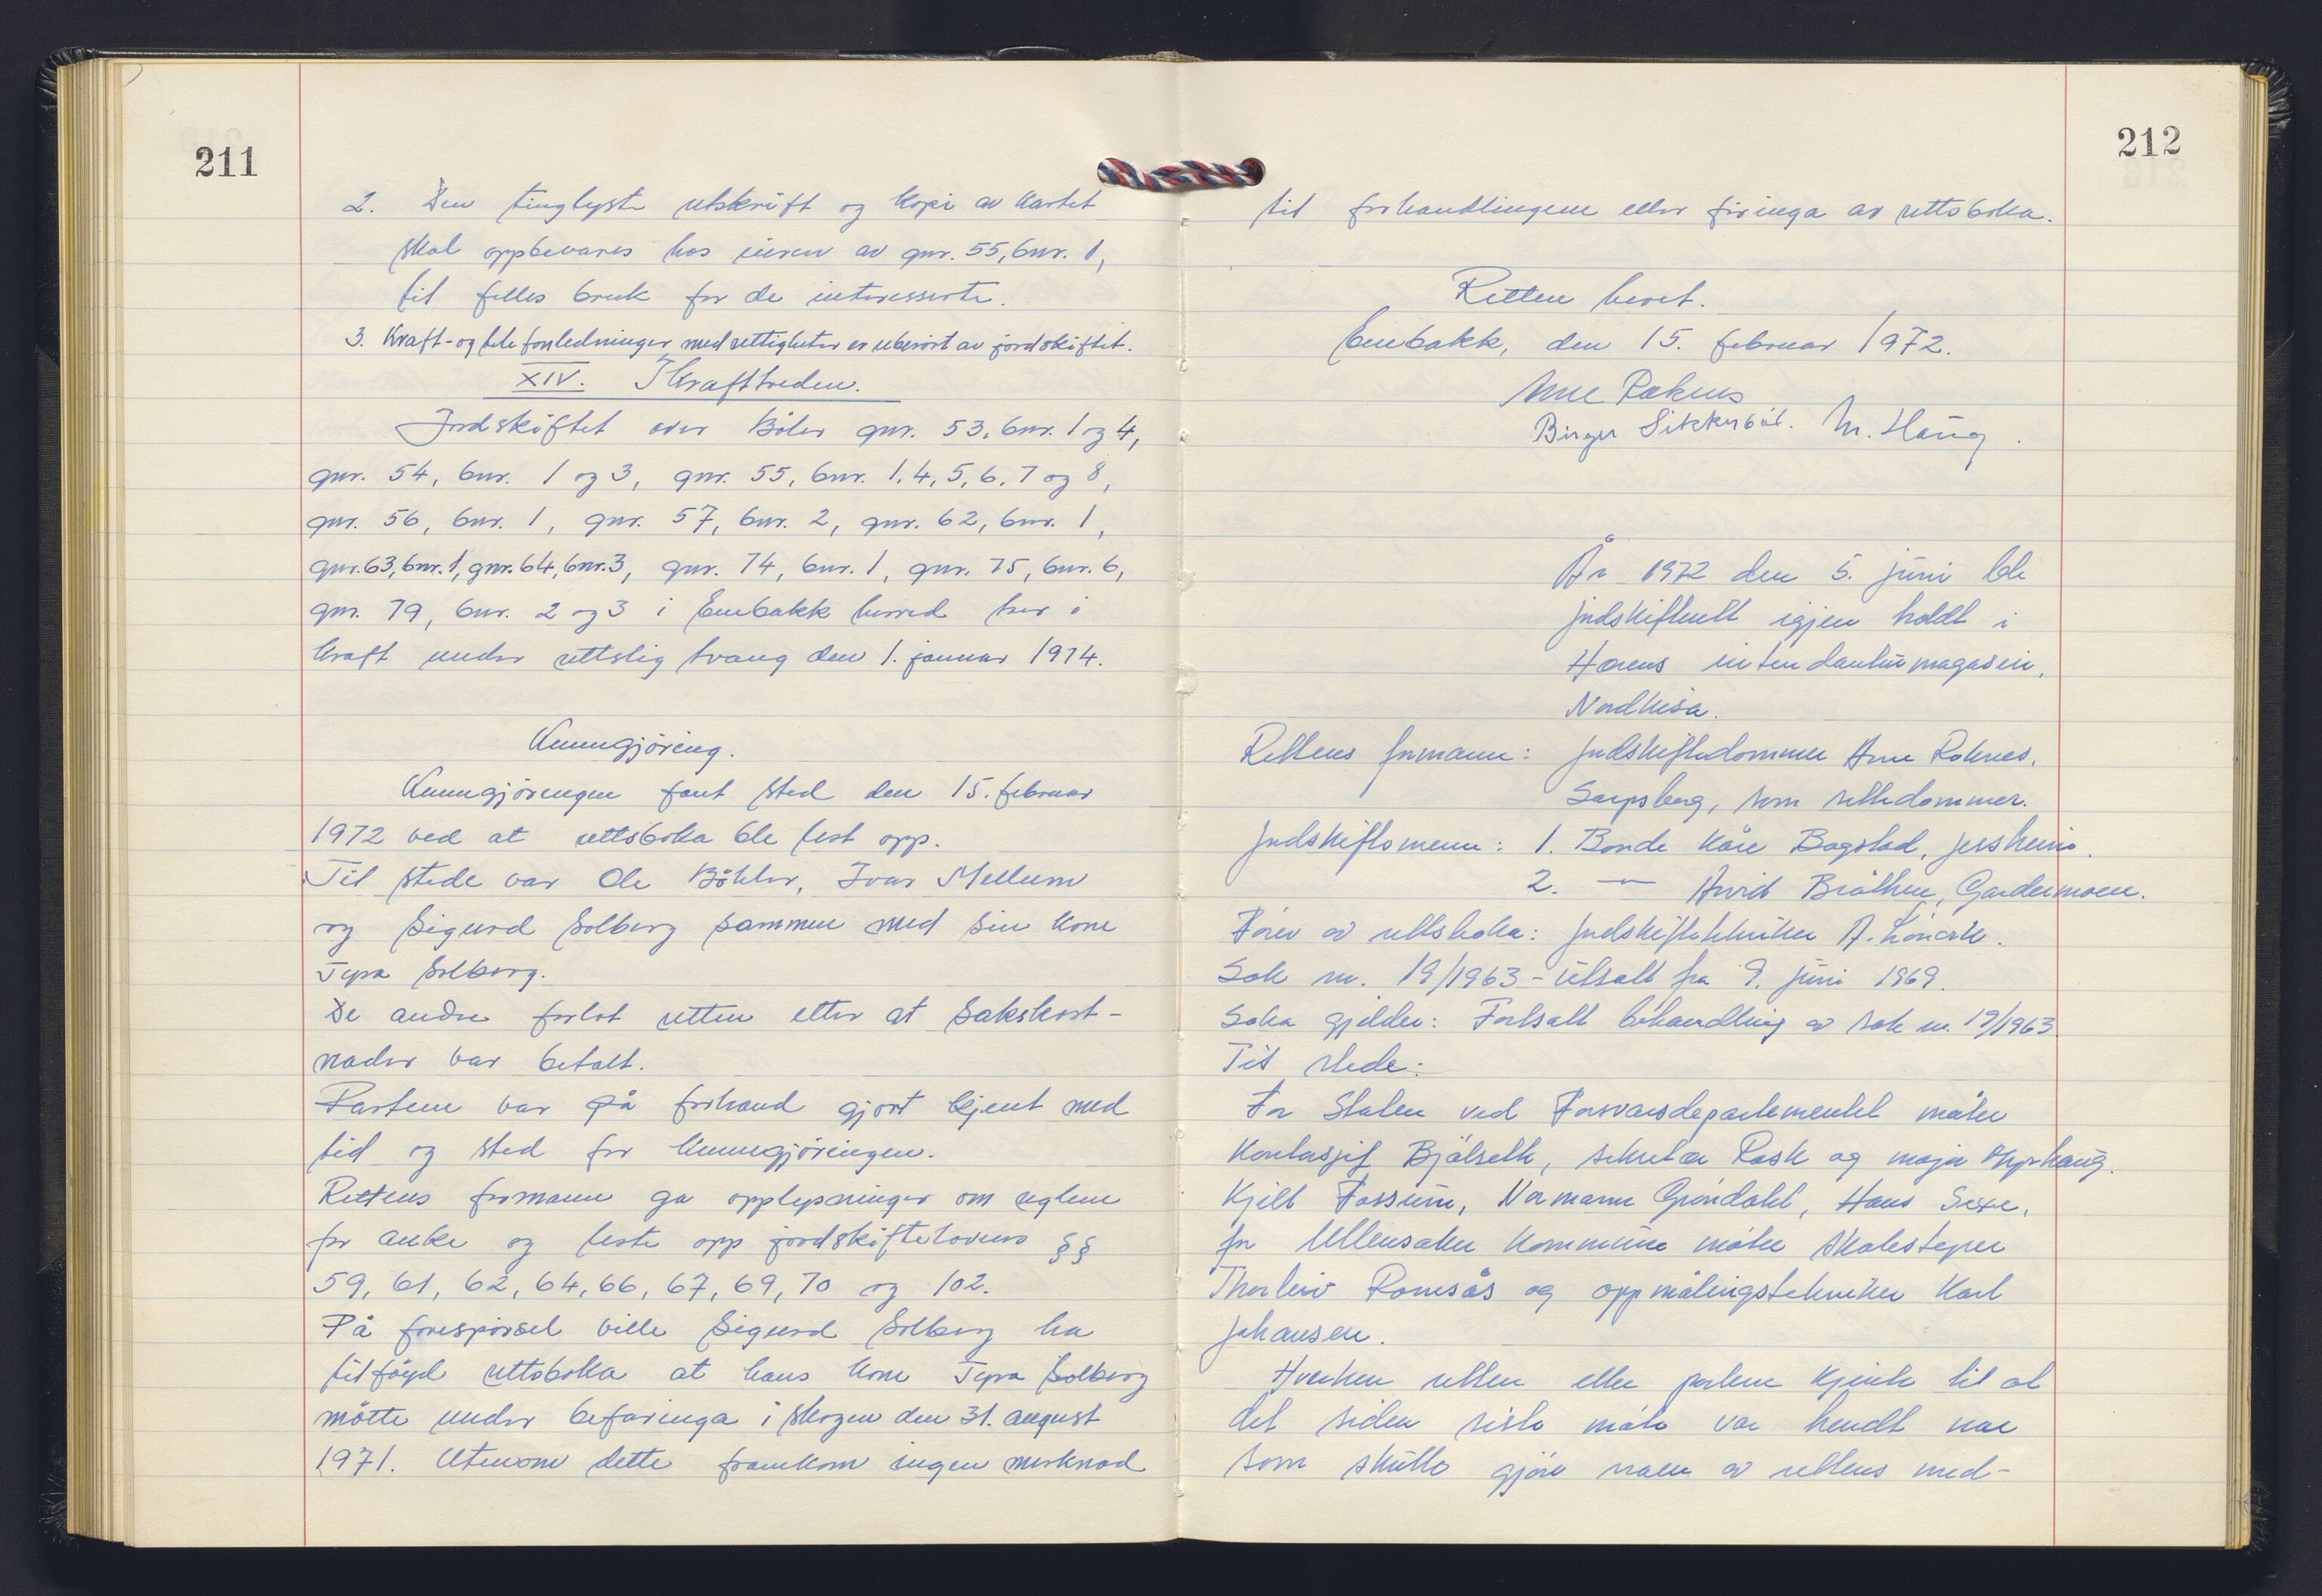 211
2. Den tinglyste utskrift og kopi av kartet
skal oppbevares hos eieren av gnr. 55, bnr. 1,
til felles bruk for de interesserte.
3. Kraft- og telefonledninger med rettigheter er uberört av jordskiftet.
XIV. Ikrafttreden.
Jordskiftet over Böler gnr. 53, bnr. 1 og 4,
gnr. 54, bnr. 1 og 3, gnr. 55, bnr. 1, 4, 5, 6, 7 og 8,
gnr. 56, bnr. 1, gnr. 57, bnr. 2, gnr. 62, bnr. 1,
gnr. 63, bnr. 1, gnr. 64, bnr. 3, gnr. 74, bnr. 1, gnr. 75, bnr. 6,
gnr. 79, bnr. 2 og 3 i Enebakk herred trer i
kraft under rettslig tvang den 1. januar 1974.
Kunngjöring.
Kunngjöringen fant sted den 15. februar
1972 ved at rettsboka ble lest opp.
Til stede var Ole Böhler, Ivar Mellum
og Sigurd Solberg sammen med sin kone
Tyra Solberg.
De andre forlot retten etter at sakskost-
nader var betalt.
Partene var på forhand gjort kjent med
tid og sted for kunngjöringen.
Rettens formann ga opplysninger om reglene
for anke og leste opp jordskiftelovens §§
59, 61, 62, 64, 66, 67, 69, 70 og 102.
På forespörsel ville Sigurd Solberg ha
tilföyd rettsboka at hans kone Tyra Solberg
mötte under befaringa i skogen den 31. august
1971. Utenom dette framkom ingen merknad
212
til forhandlingene eller föringa av rettsboka.
Retten hevet.
Enebakk, den 15. februar 1972.
Arne Roknes
Birger Sikkerböl. M. Haug.
År 1972 den 5. juni ble
jordskifterett igjen holdt i
Hærens intendanturmagasin,
Nordkisa.
Rettens formann: Jordskiftedommer Arne Roknes,
Sarpsborg, som rettsdommer.
Jordskiftsmenn: 1. Bonde Kåre Bogstad, Jessheim.
2. — Arvid Bråthen, Gardermoen.
Förer av rettsboka: Jordskiftetekniker A.
Sak nr. 19/1963 - utsatt fra 9. juni 1969.
Saka gjelder: Fortsatt behandling av sak nr. 19/1963
Til stede:
For Staten ved Forsvarsdepartementet möter
Kontorsjef, sekretær Rask og major
Kjell Fossum, Normann Gröndahl, Hans Sexe,
for Ullensaker kommune möter skatestyrer
Thorleiv Romsås og oppmålingstekniker Karl
Johansen.
Hverken retten eller partene kjente til at
det siden siste möte var hendt noe
som skulle gjöre noen av rettens med-